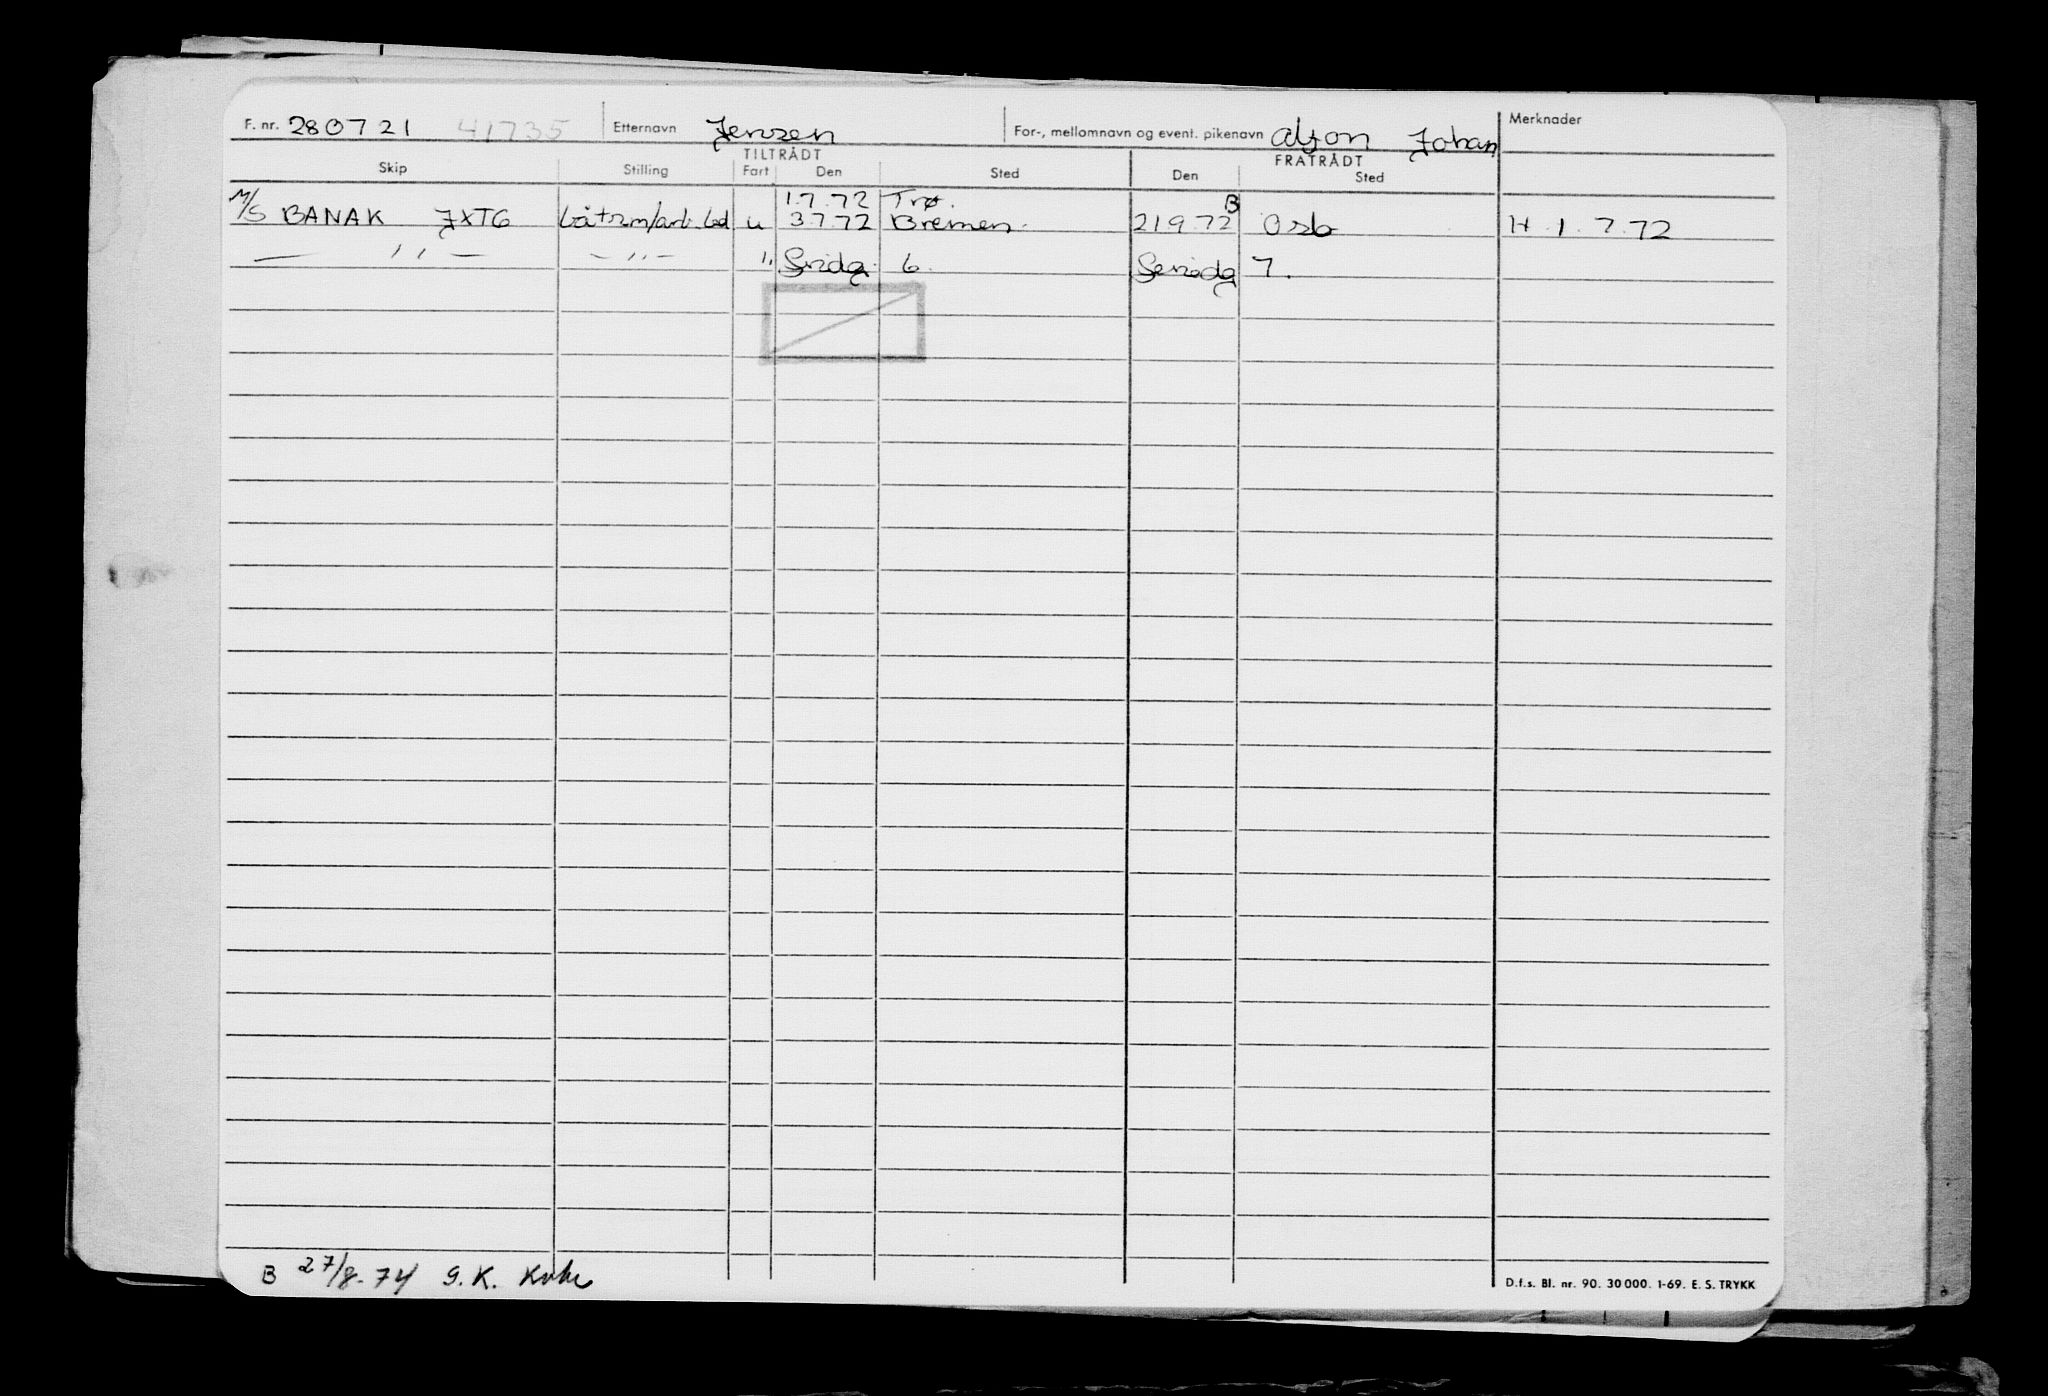 F. nr. 280721 41735 Etternavn Jensen For-, mellomnavn og event. pikenavn Alfon Johan Merknader
TILTRÅDT FRATRÅDT
Skip Stilling Fart Den Sted Den Sted
1.7.72 Trø. B
M/S BANAK JXTG båtsm/arb. led u 3.7.72 Bremen. 219.72 Osb H. 1.7.72
— ,, — — ,, — ,, 6. 7.
B 27/8-74 G. K.
D.f.s. Bl. nr. 90. 30 000. 1-69. E. S. TRYKK